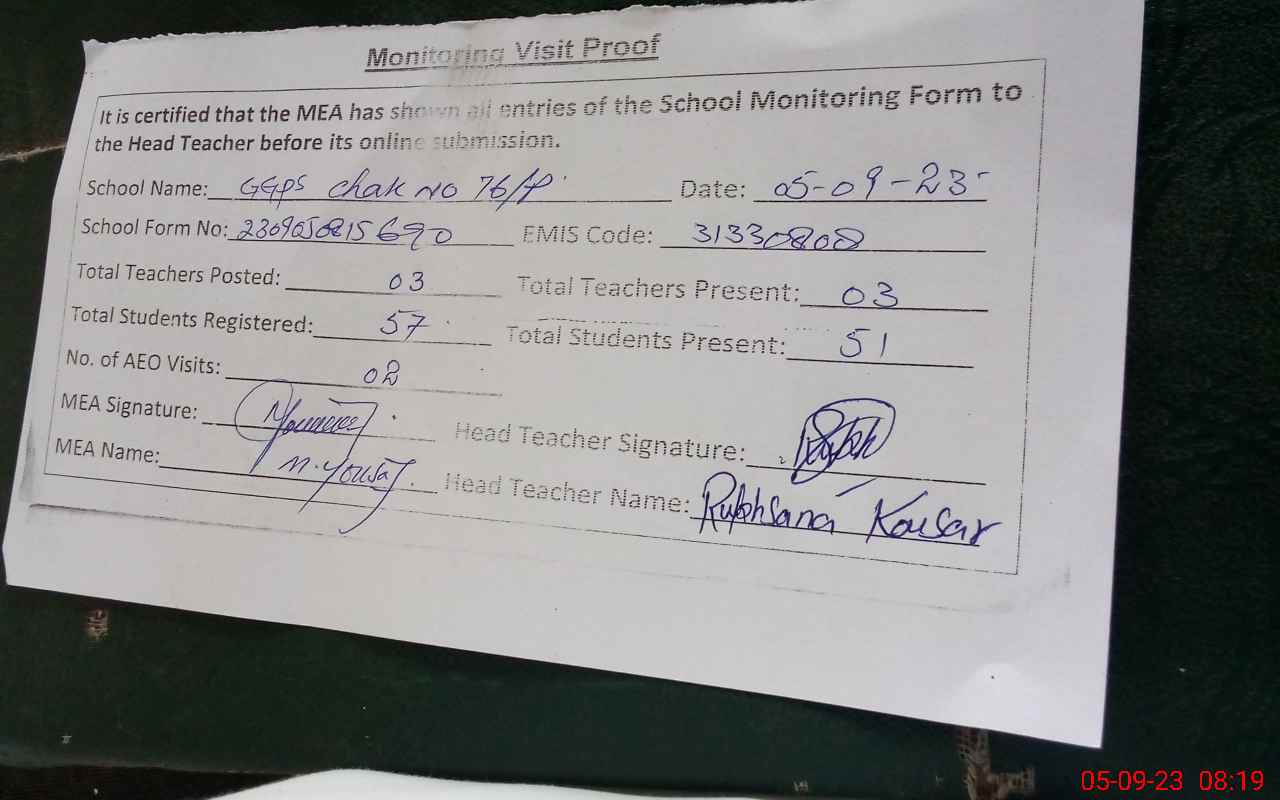 Monitoring Visit Proof
It is certified that the MEA has shown all entries of the School Monitoring Form to
the Head Teacher before its online submission.
School Name: GGPS Chak NO 76/P Date: 05-09-23
School Form No: 2309050815690 EMIS Code: 31330808
Total Teachers Posted: 03 Total Teachers Present: 03
Total Students Registered: 57 Total Students Present: 51
No. of AEO Visits: 02
MEA Signature: Head Teacher Signature:
MEA Name: M. Yousaf Head Teacher Name: Rukhsana Kousar
05-09-23 08:19